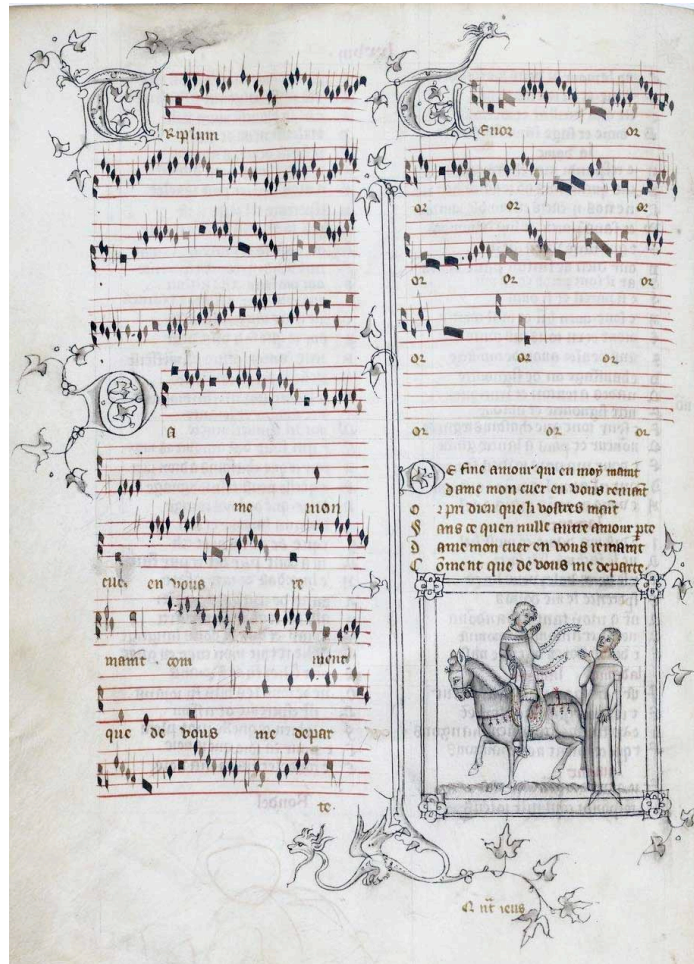 Triplum
Da
me mon
cuer en vous re
maint com ment
que de vous me depar
te.
Tenor or
or or or
or or or
or or or
or or or
De fine amour qui en moy maint
dame mon cuer en vous remaint
Or pri dieu que li vostres maint
Sans ce quen nulle autre amour pte
Dame mon cuer en vous remaint
Cõment que de vous me departe.